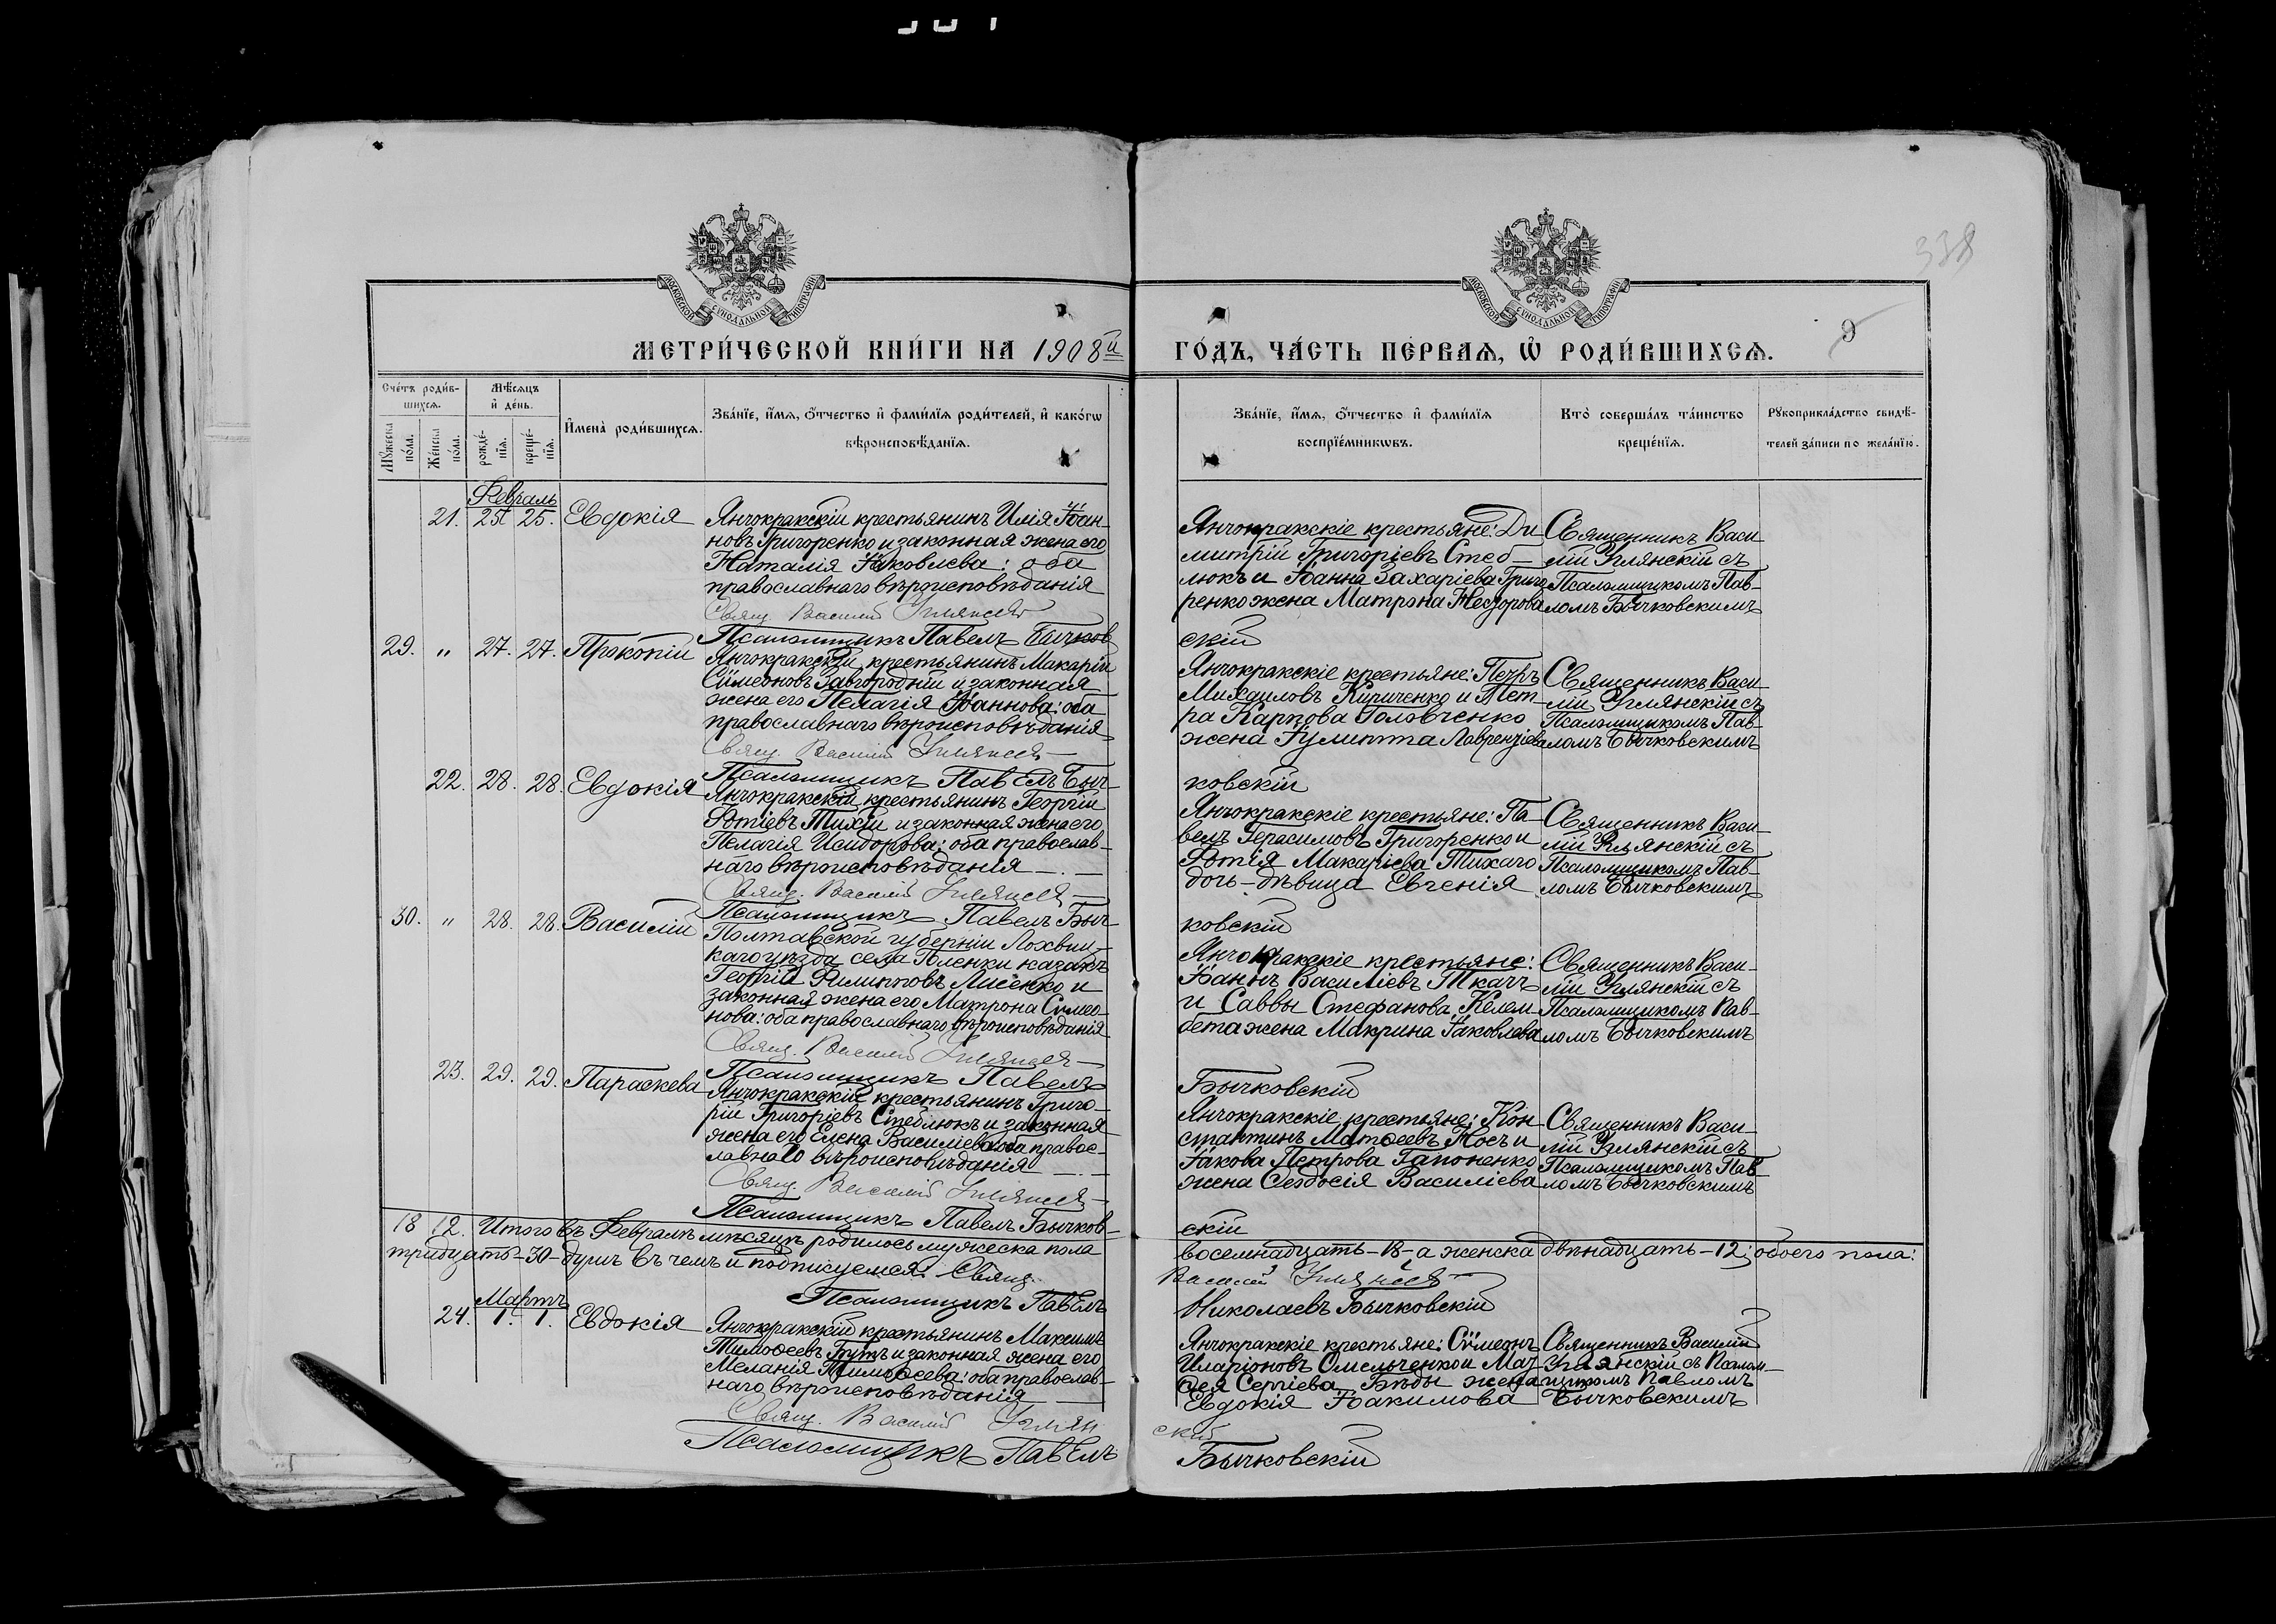 338
МОСКОВСКОЙ СѴНОДАЛЬНОЙ ТИПОГРАФІИ
МОСКОВСКОЙ СѴНОДАЛЬНОЙ ТИПОГРАФІИ
МЕТРИ́ЧЕСКОЙ КНИ́ГИ НА 1908й ГО́ДЪ, ЧА́СТЬ ПЕ́РВАѦ, Ѽ РОДИ́ВШИХСѦ. 9
Сче́тъ роди́в-
шихсѧ.
Мꙋ́жеска по́ла.
Же́нска по́ла.
Мѣ́сѧцъ
и҆ де́нь.
рожде́-
нїѧ.
креще́-
нїѧ.
И҆мена̀ роди́вшихсѧ.
Зва́нїе, и҆́мѧ, ѻ҆́тчество и҆ фами́лїѧ роди́телей, и҆ како́гѡ
вѣроисповѣ́данїѧ.
Зва́нїе, и҆́мѧ, ѻ҆́тчество и҆ фами́лїѧ
воспрїе́мникѡвъ.
Кто̀ соверша́лъ та́инство
креще́нїѧ.
Рꙋкоприкла́дство свидѣ́-
телей за́писи по жела́нїю.
Февраль
21. 25. 25. Евдокія
Янчокракскій крестьянинъ Илія Іоан-
новъ Григоренко и законная жена его
Наталія Іаковлева: оба
православнаго вѣроисповѣданія
Свящ. Василій Углянскій
Псаломщикъ Павелъ Бычков
скій
Янчокракскіе крестьяне: Ди
митрій Григоріевъ Стеб-
люкъ и Іоанна Захаріева Григо
ренко жена Матрона Несторова
Священникъ Васи
лій Углянскій съ
Псаломщикомъ Пав-
ломъ Бычковскимъ
29. „ 27. 27. Прокопій
Янчокракскій крестьянинъ Макарій
Сѵмеоновъ Завгородній и законная
жена его Пелагія Іоаннова: оба
православнаго вѣроисповѣданія
Свящ. Василій Углянскій
Псаломщикъ Павелъ Быч-
ковскій
Янчокракскіе крестьяне: Петръ
Михаиловъ Кириченко и Пет-
ра Карпова Головченко
жена Іулитта Лаврентіева
Священникъ Васи
лій Углянскій съ
Псаломщикомъ Пав-
ломъ Бычковскимъ
22. 28. 28. Евдокія
Янчокракскій крестьянинъ Георгій
Фотіевъ Тихій и законная жена его
Пелагія Исидорова: оба православ-
наго вѣроисповѣданія
Свящ. Василій Углянскій
Псаломщикъ Павелъ Быч-
ковскій
Янчокракскіе крестьяне: Па-
велъ Герасимовъ Григоренко и
Фотія Макаріева Тихаго
дочь-дѣвица Евгенія
Священникъ Васи-
лій Углянскій съ
Псаломщикомъ Пав-
ломъ Бычковскимъ
30. „ 28. 28. Василій
Полтавской губерніи Лохвиц-
каго уѣзда села Гленки казакъ
Георгій Филипповъ Лисенко и
законная жена его Матрона Сѵмео-
нова: оба православнаго вѣроисповѣданія
Свящ. Василій Углянскій
Псаломщикъ Павелъ
Бычковскій
Янчокракскіе крестьяне:
Іоаннъ Василіевъ Ткачъ
и Саввы Стефанова Келем-
бета жена Макрина Іаковлева
Священникъ Васи-
лій Углянскій съ
Псаломщикомъ Пав-
ломъ Бычковскимъ
23. 29. 29. Параскева
Янчокракскій крестьянинъ Григо-
рій Григоріевъ Стеблюкъ и законная
жена его Елена Василіева: оба правос-
лавнаго вѣроисповѣданія
Свящ. Василій Углянскій
Псаломщикъ Павелъ Бычков-
скій
Янчокракскіе крестьяне: Кон
стантинъ Матѳеевъ Носъ и
Іакова Петрова Гапоненко
жена Ѳеодосія Василіева
Священникъ Васи-
лій Углянскій съ
Псаломщикомъ Пав-
ломъ Бычковскимъ
18 12. Итого въ Февралѣ мѣсяцѣ родилось мужеска пола восемнадцать-18-а женска двѣнадцать-12; обоего пола:
тридцать-30-душъ въ чемъ и подписуемся: Свящ. Василій Углянскій
Псаломщикъ Павелъ Николаевъ Бычковскій
Мартъ
24. 1. 1. Евдокія
Янчокракскій крестьянинъ Максимъ
Тимоѳеевъ Бутъ и законная жена его
Меланія Тимоѳеева: оба православ-
наго вѣроисповѣданія
Свящ. Василій Углян
скій
Псаломщикъ Павелъ Бычковскій
Янчокракскіе крестьяне: Сѵмеонъ
Иларіоновъ Омельченко и Мат-
ѳея Сергіева Бѣды жена
Евдокія Іоакимова
Священникъ Василій
Углянскій съ Псалом-
щикомъ Павломъ
Бычковскимъ